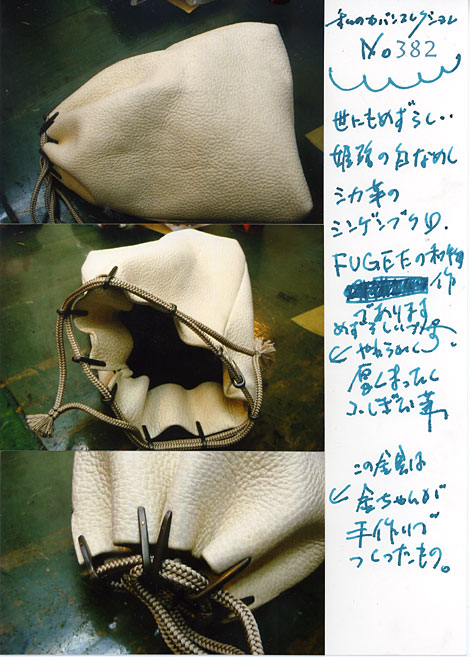 私のカバンコレクション
No382
世にもめずらし..
姫路の白なめし
シカ革の
シンゲンブクロ.
FUGEEの
作
であります
めずらしい
やわらかく
厚くまったく
ふしぎな革。
この金具は
金ちゃんが
手作りで
つくったもの。